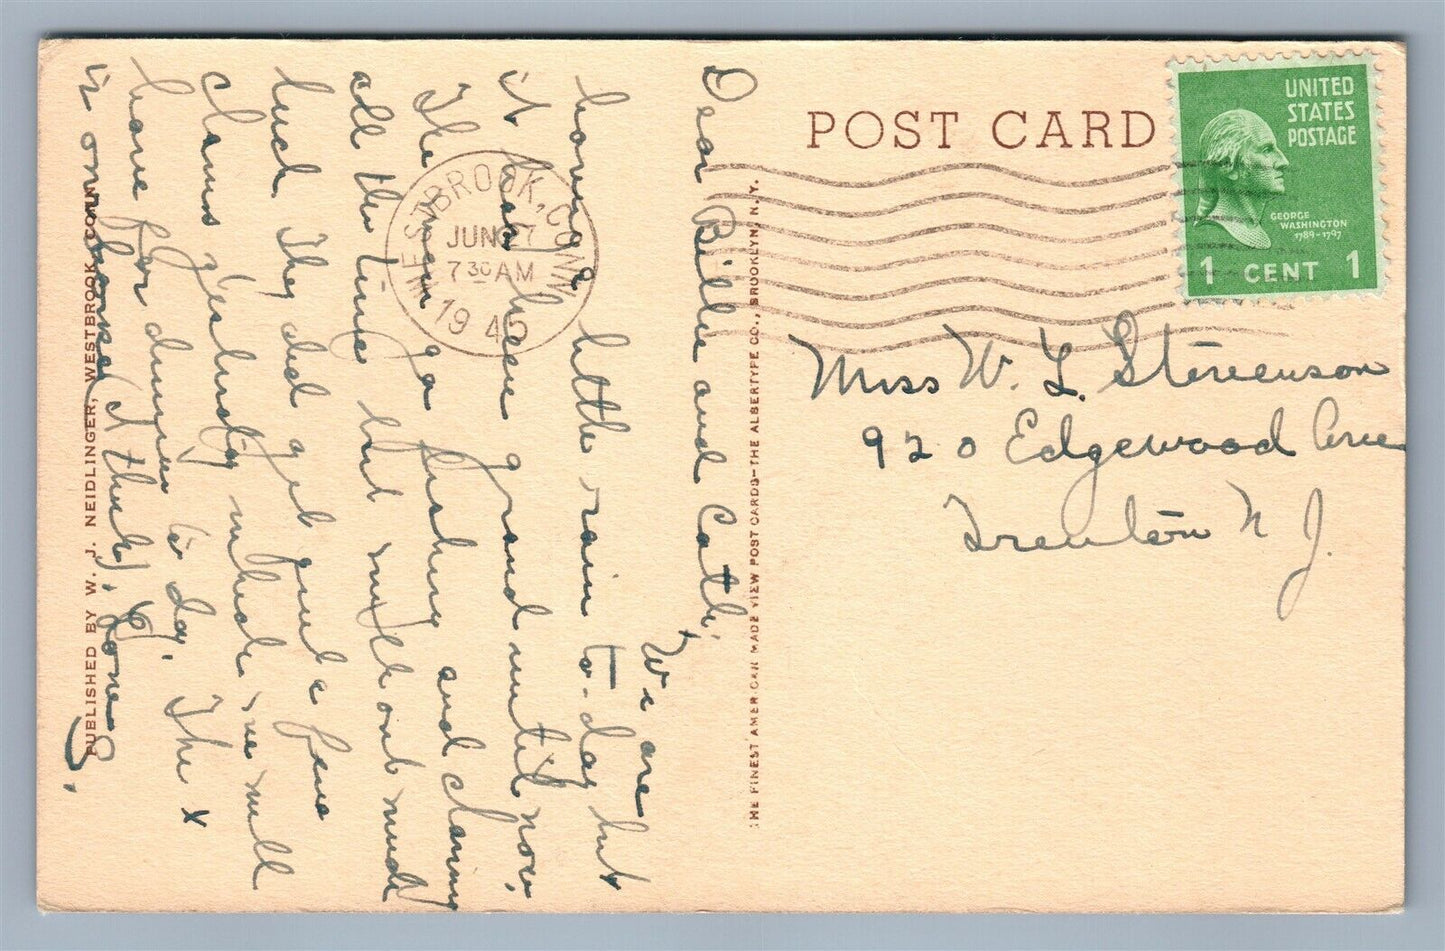 POST CARD
UNITED
STATES
POSTAGE
GEORGE
WASHINGTON
1789-1797
1 CENT 1
WESTBROOK, CONN.
JUN 27
7 30 AM
1940
Miss W. L. Stevenson
920 Edgewood Ave
Trenton N J.
Dear Bille and Cath,
We are
having little rain to-day but
it has been grand until now.
The men go fishing and claming
all the time but without much
luck. They did get quite a few
clams yesterday which we will
have for dinner to-day. The x
is our house I think.
THE FINEST AMERICAN MADE VIEW POST CARDS—THE ALBERTYPE CO., BROOKLYN, N.Y.
PUBLISHED BY W. J. NEIDLINGER, WESTBROOK, CONN.